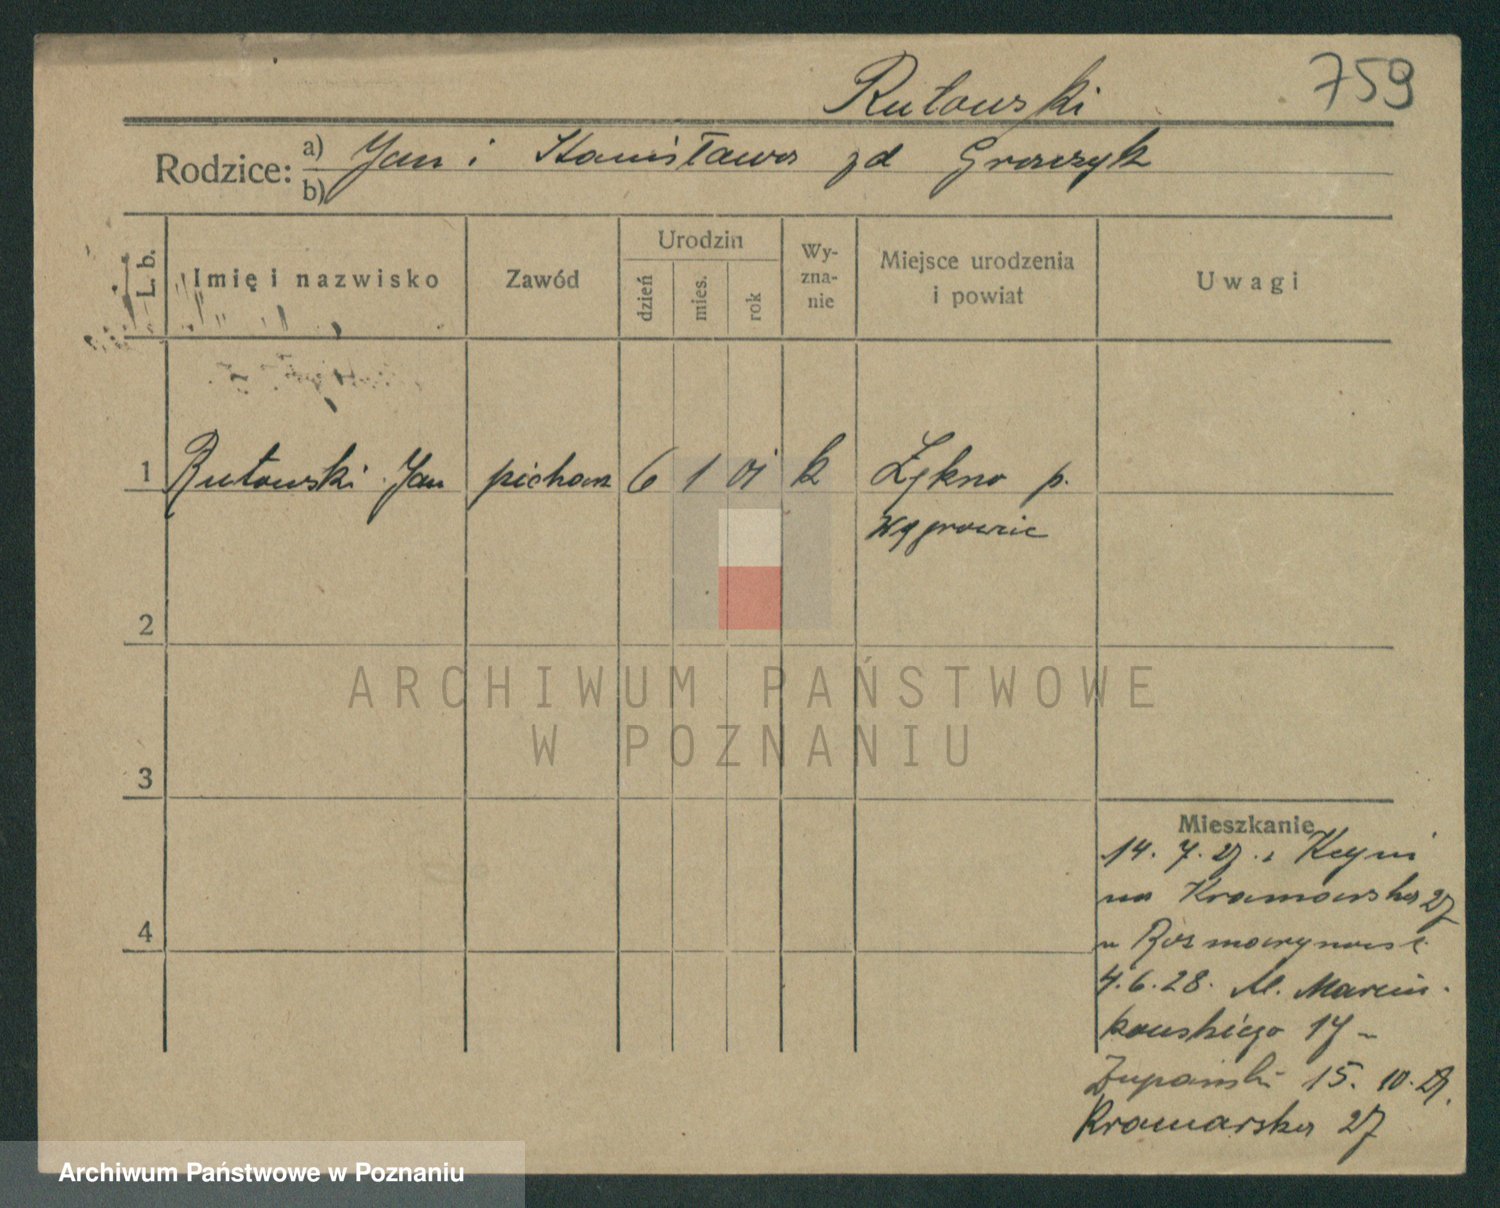 Rutowski 759
Rodzice: a) Jan i Stanisława zd Graczyk
b)
L. b. Imię i nazwisko Zawód Urodzin dzień mies. rok Wy-zna-nie Miejsce urodzenia i powiat Uwagi
1 Rutowski Jan piekarz 6 1 01 k Łekno p.
Wągrowiec
2
ARCHIWUM PAŃSTWOWE
W POZNANIU
3
Mieszkanie
14. 7. 27. z Kcyni
na Kramarska 27
4
u Rozmarynowski
4. 6. 28. Al. Marcin-
kowskiego 17 -
Żupański 15. 10. 29.
Kramarska 27
Archiwum Państwowe w Poznaniu